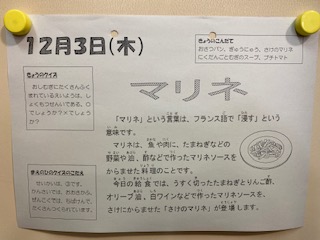 12月3日(木)
きょうのこんだて
おさつパン、ぎゅうにゅう、さけのマリネ
にくだんごとむぎのスープ、プチトマト
きょうのクイズ
おしむぎにたくさんふく
まれているえいようは、し
ょくもつせんいである。○
でしょうか?×でしょう
か?
マリネ
「マリネ」という言葉は、フランス語で「浸す」という
意味です。
マリネは、魚や肉に、たまねぎなどの
野菜や油、酢などで作ったマリネソースを
からませた料理のことです。
今日の給食では、うすく切ったたまねぎとりんご酢、
オリーブ油、白ワインなどで作ったマリネソースを、
さけにからませた「さけのマリネ」が登場します。
まえのひのクイズのこたえ
せいかいは、③です。
かんさいでは、おおさかが、
ぜんこくでは、ちばけんで、
たくさんつくられています。